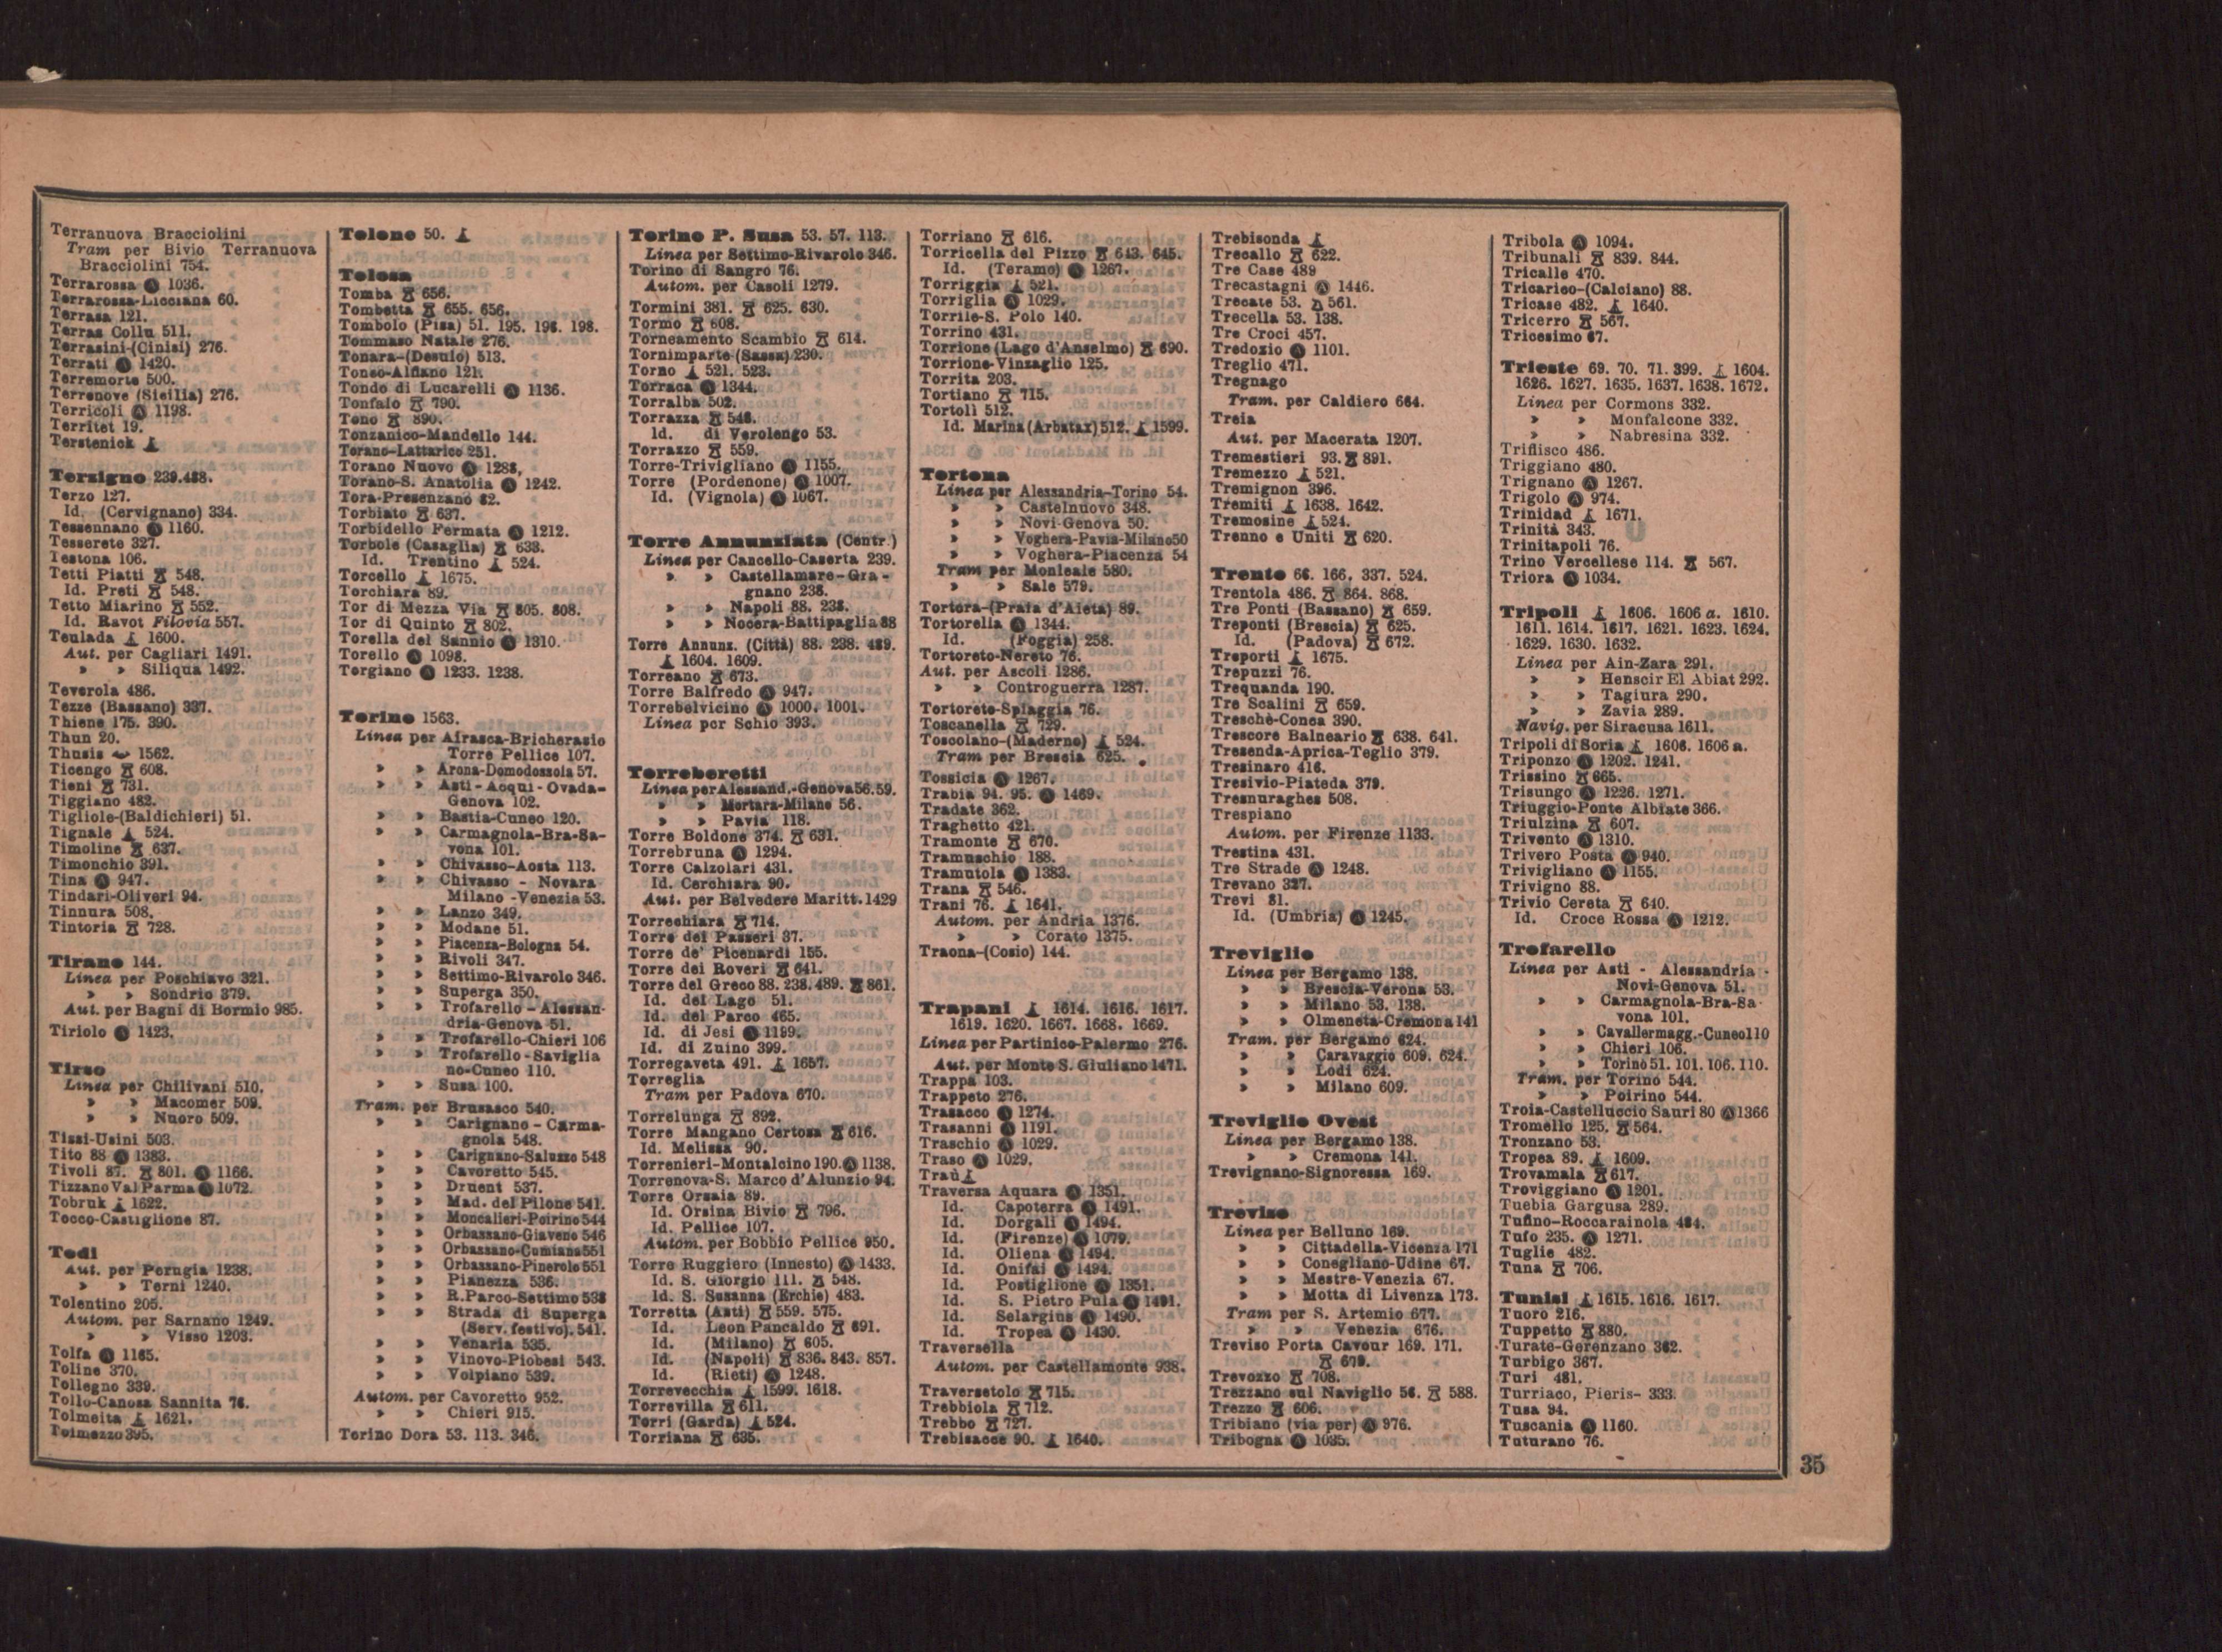 Terranuova Bracciolini
Tram per Bivio Terranuova
Bracciolini 754.
Terrarossa 1036.
Terrarossa-Licciana 60.
Terrasa 121.
Terras Collu 511.
Terrasini-(Cinisi) 276.
Terrati 1420.
Terremorte 500.
Terrenove (Sicilia) 276.
Terricoli 1198.
Territet 19.
Terstenick
Terzigno 239.488.
Terzo 127.
Id. (Cervignano) 334.
Tessennano 1160.
Tesserete 327.
Testona 106.
Tetti Piatti 548.
Id. Preti 548.
Tetto Miarino 552.
Id. Ravot Filovia 557.
Teulada 1600.
Aut. per Cagliari 1491.
» » Siliqua 1492.
Teverola 486.
Tezze (Bassano) 337.
Thiene 175. 390.
Thun 20.
Thusis 1562.
Ticengo 608.
Tieni 731.
Tiggiano 482.
Tigliole-(Baldichieri) 51.
Tignale 524.
Timoline 637.
Timonchio 391.
Tina 947.
Tindari-Oliveri 94.
Tinnura 508.
Tintoria 728.
Tirano 144.
Linea per Poschiavo 321.
» » Sondrio 379.
Aut. per Bagni di Bormio 985.
Tiriolo 1423.
Tirso
Linea per Chilivani 510.
» » Macomer 509.
» » Nuoro 509.
Tissi-Usini 503.
Tito 88 1383.
Tivoli 87. 801. 1166.
Tizzano Val Parma 1072.
Tobruk 1622.
Tocco-Castiglione 87.
Todi
Aut. per Perugia 1238.
» » Terni 1240.
Tolentino 205.
Autom. per Sarnano 1249.
» » Visso 1203.
Tolfa 1165.
Toline 370.
Tollegno 339.
Tollo-Canosa Sannita 76.
Tolmeita 1621.
Tolmezzo 395.
Tolone 50.
Tolosa
Tomba 656.
Tombetta 655. 656.
Tombolo (Pisa) 51. 195. 196. 198.
Tommaso Natale 276.
Tonara-(Desulo) 513.
Tonco-Alfiano 121.
Tondo di Lucarelli 1136.
Tonfalo 790.
Tono 890.
Tonzanico-Mandello 144.
Torano-Lattarico 251.
Torano Nuovo 1288,
Torano-S. Anatolia 1242.
Tora-Presenzano 82.
Torbiato 637.
Torbidello Fermata 1212.
Torbole (Casaglia) 633.
Id. Trentino 524.
Torcello 1675.
Torchiara 89.
Tor di Mezza Via 805. 808.
Tor di Quinto 802.
Torella del Sannio 1310.
Torello 1098.
Torgiano 1233. 1238.
Torino 1563.
Linea per Airasca-Bricherasio
Torre Pellice 107.
» » Arona-Domodossola 57.
» » Asti-Acqui-Ovada-
Genova 102.
» » Bastia-Cuneo 120.
» » Carmagnola-Bra-Sa-
vona 101.
» » Chivasso-Aosta 113.
» » Chivasso - Novara
Milano -Venezia 53.
» » Lanzo 349.
» » Modane 51.
» » Piacenza-Bologna 54.
» » Rivoli 347.
» » Settimo-Rivarolo 346.
» » Superga 350.
» » Trofarello - Alessan-
dria-Genova 51.
» » Trofarello-Chieri 106
» » Trofarello-Saviglia
no-Cuneo 110.
» » Susa 100.
Tram. per Brusasco 540.
» » Carignano-Carma-
gnola 548.
» » Carignano-Saluzzo 548
» » Cavoretto 545.
» » Druent 537.
» » Mad. del Pilone 541.
» » Moncalieri-Poirino 544
» » Orbassano-Giaveno 546
» » Orbassano-Cumiana 551
» » Orbassano-Pinerolo 551
» » Pianezza 536.
» » R.Parco-Settimo 538
» » Strada di Superga
(Serv. festivo). 541.
» » Venaria 535.
» » Vinovo-Piobesi 543.
» » Volpiano 539.
Autom. per Cavoretto 952.
» » Chieri 915.
Torino Dora 53. 113. 346.
Torino P. Susa 53. 57. 113.
Linea per Settimo-Rivarolo 346.
Torino di Sangro 76.
Autom. per Casoli 1279.
Tormini 381. 625. 630.
Tormo 608.
Torneamento Scambio 614.
Tornimparte (Sassa) 230.
Torno 521. 523.
Torraca 1344.
Torralba 502.
Torrazza 548.
Id. di Verolengo 53.
Torrazzo 559.
Torre-Trivigliano 1155.
Torre (Pordenone) 1007.
Id. (Vignola) 1067.
Torre Annunziata (Centr.)
Linea per Cancello-Caserta 239.
» » Castellamare-Gra-
gnano 238.
» » Napoli 88. 238.
» » Nocera-Battipaglia 88
Torre Annunz. (Città) 88. 238. 489.
1604. 1609.
Torreano 673.
Torre Balfredo 947.
Torrebelvicino 1000. 1001.
Linea per Schio 393.
Torreberetti
Linea per Alessand.-Genova 56.59.
» » Mortara-Milano 56.
» » Pavia 118.
Torre Boldone 374. 631.
Torrebruna 1294.
Torre Calzolari 431.
Id. Cerchiara 90.
Aut. per Belvedere Maritt. 1429
Torrechiara 714.
Torre dei Passeri 87.
Torre de' Picenardi 155.
Torre dei Roveri 641.
Torre del Greco 88. 238. 489. 861.
Id. del Lago 51.
Id. del Parco 465.
Id. di Jesi 1199.
Id. di Zuino 399.
Torregaveta 491. 1657.
Torreglia
Tram per Padova 670.
Torrelunga 892.
Torre Mangano Certosa 616.
Id. Melissa 90.
Torrenieri-Montalcino 190. 1138.
Torrenova-S. Marco d'Alunzio 94.
Torre Orsaia 89.
Id. Orsina Bivio 796.
Id. Pellice 107.
Autom. per Bobbio Pellice 950.
Torre Ruggiero (Innesto) 1433.
Id. S. Giorgio 111. 548.
Id. S. Susanna (Erchie) 483.
Torretta (Asti) 559. 575.
Id. Leon Pancaldo 691.
Id. (Milano) 605.
Id. (Napoli) 836. 843. 857.
Id. (Rieti) 1248.
Torrevecchia 1599. 1618.
Torrevilla 611.
Torri (Garda) 524.
Torriana 635.
Torriano 616.
Torricella del Pizzo 643. 645.
Id. (Teramo) 1267.
Torriggia 521.
Torriglia 1029.
Torrile-S. Polo 140.
Torrino 431.
Torrione (Lago d'Anselmo) 690.
Torrione-Vinzaglio 125.
Torrita 203.
Tortiano 715.
Tortolì 512.
Id. Marina (Arbatax) 512. 1599.
Tortona
Linea per Alessandria-Torino 54.
» » Castelnuovo 348.
» » Novi-Genova 50.
» » Voghera-Pavia-Milano 50
» » Voghera-Piacenza 54
Tram per Monleale 580.
» » Sale 579.
Tortora-(Praia d'Aieta) 89.
Tortorella 1344.
Id. (Foggia) 258.
Tortoreto-Nereto 76.
Aut. per Ascoli 1286.
» » Controguerra 1287.
Tortoreto-Spiaggia 76.
Toscanella 729.
Toscolano-(Maderno) 524.
Tram per Brescia 625.
Tossicia 1267.
Trabia 94. 95. 1469.
Tradate 362.
Traghetto 421.
Tramonte 670.
Tramuschio 188.
Tramutola 1383.
Trana 546.
Trani 76. 1641.
Autom. per Andria 1376.
» » Corato 1375.
Traona-(Cosio) 144.
Trapani 1614. 1616. 1617.
1619. 1620. 1667. 1668. 1669.
Linea per Partinico-Palermo 276.
Aut. per Monte S. Giuliano 1471.
Trappa 103.
Trappeto 276.
Trasacco 1274.
Trasanni 1191.
Traschio 1029.
Traso 1029.
Traù
Traversa Aquara 1351.
Id. Capoterra 1491.
Id. Dorgali 1494.
Id. (Firenze) 1079.
Id. Oliena 1494.
Id. Onifai 1494.
Id. Postiglione 1351.
Id. S. Pietro Pula 1491.
Id. Selargius 1490.
Id. Tropea 1430.
Traversella
Autom. per Castellamonte 938.
Traversetolo 715.
Trebbiola 712.
Trebbo 727.
Trebisacce 90. 1640.
Trebisonda
Trecallo 622.
Tre Case 489
Trecastagni 1446.
Trecate 53. 561.
Trecella 53. 138.
Tre Croci 457.
Tredozio 1101.
Treglio 471.
Tregnago
Tram. per Caldiero 664.
Treia
Aut. per Macerata 1207.
Tremestieri 93. 891.
Tremezzo 521.
Tremignon 396.
Tremiti 1638. 1642.
Tremosine 524.
Trenno e Uniti 620.
Trento 66. 166. 337. 524.
Trentola 486. 864. 868.
Tre Ponti (Bassano) 659.
Treponti (Brescia) 625.
Id. (Padova) 672.
Treporti 1675.
Trepuzzi 76.
Trequanda 190.
Tre Scalini 659.
Treschè-Conca 390.
Trescore Balneario 638. 641.
Tresenda-Aprica-Teglio 379.
Tresinaro 416.
Tresivio-Piateda 379.
Tresnuraghes 508.
Trespiano
Autom. per Firenze 1133.
Trestina 431.
Tre Strade 1248.
Trevano 327.
Trevi 81.
Id. (Umbria) 1245.
Treviglio
Linea per Bergamo 138.
» » Brescia-Verona 53.
» » Milano 53. 138.
» » Olmeneta-Cremona 141
Tram. per Bergamo 624.
» » Caravaggio 609. 624.
» » Lodi 624.
» » Milano 609.
Treviglio Ovest
Linea per Bergamo 138.
» » Cremona 141.
Trevignano-Signoressa 169.
Treviso
Linea per Belluno 169.
» » Cittadella-Vicenza 171
» » Conegliano-Udine 67.
» » Mestre-Venezia 67.
» » Motta di Livenza 173.
Tram per S. Artemio 677.
» » Venezia 676.
Treviso Porta Cavour 169. 171.
679.
Trevozzo 708.
Trezzano sul Naviglio 56. 588.
Trezzo 606.
Tribiano (via per) 976.
Tribogna 1035.
Tribola 1094.
Tribunali 839. 844.
Tricalle 470.
Tricarico-(Calciano) 88.
Tricase 482. 1640.
Tricerro 567.
Tricesimo 67.
Trieste 69. 70. 71. 399. 1604.
1626. 1627. 1635. 1637. 1638. 1672.
Linea per Cormons 332.
» » Monfalcone 332.
» » Nabresina 332.
Triflisco 486.
Triggiano 480.
Trignano 1267.
Trigolo 974.
Trinidad 1671.
Trinità 343.
Trinitapoli 76.
Trino Vercellese 114. 567.
Triora 1034.
Tripoli 1606. 1606 a. 1610.
1611. 1614. 1617. 1621. 1623. 1624.
1629. 1630. 1632.
Linea per Ain-Zara 291.
» » Henscir El Abiat 292.
» » Tagiura 290.
» » Zavia 289.
Navig. per Siracusa 1611.
Tripoli di Soria 1606. 1606 a.
Triponzo 1202. 1241.
Trissino 665.
Trisungo 1226. 1271.
Triuggio-Ponte Albiate 366.
Triulzina 607.
Trivento 1310.
Trivero Posta 940.
Trivigliano 1155.
Trivigno 88.
Trivio Cereta 640.
Id. Croce Rossa 1212.
Trofarello
Linea per Asti - Alessandria -
Novi-Genova 51.
» » Carmagnola-Bra-Sa
vona 101.
» » Cavallermagg.-Cuneo 110
» » Chieri 106.
» » Torino 51. 101. 106. 110.
Tram. per Torino 544.
» » Poirino 544.
Troia-Castelluccio Sauri 80 1366
Tromello 125. 564.
Tronzano 53.
Tropea 89. 1609.
Trovamala 617.
Troviggiano 1201.
Tuebia Gargusa 289.
Tufino-Roccarainola 484.
Tufo 235. 1271.
Tuglie 482.
Tuna 706.
Tunisi 1615. 1616. 1617.
Tuoro 216.
Tuppetto 880.
Turate-Gerenzano 362.
Turbigo 367.
Turi 481.
Turriaco, Pieris- 333.
Tusa 94.
Tuscania 1160.
Tuturano 76.
35